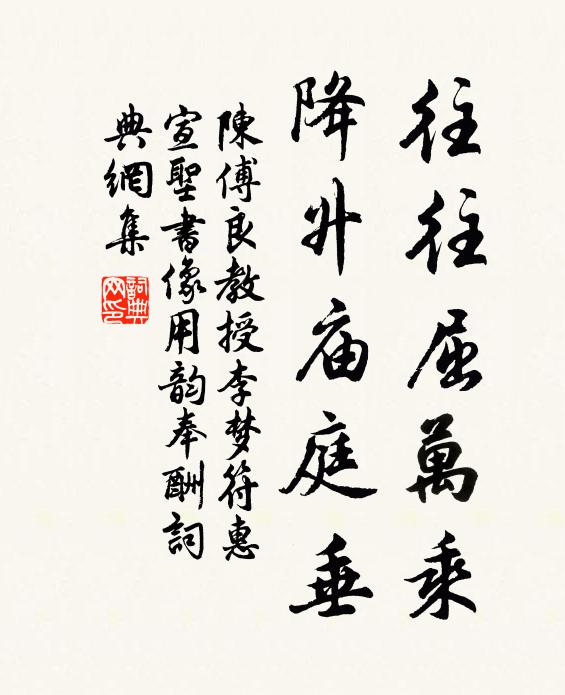 往往屈萬乘
降升庙庭垂
陳傅良教授李梦符惠
宣聖書像用韵奉酬詞
典網集
詞典
网印